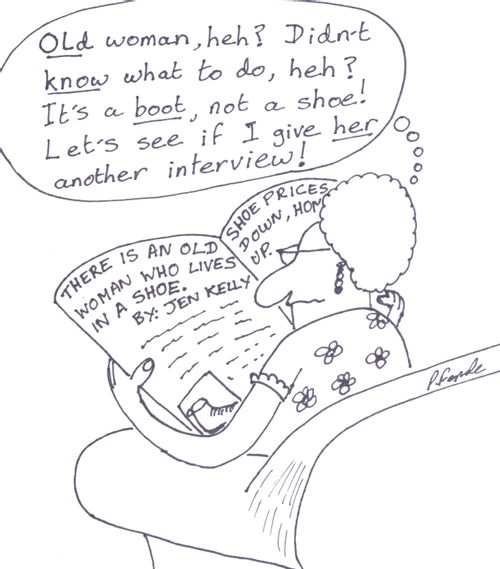 OLd woman, heh? Didn't
know what to do, heh?
It's a boot, not a shoe!
Let's see if I give her
another interview!
SHOE PRICES
DOWN, HOM
UP.
THERE IS AN OLD
WOMAN WHO LIVES
IN A SHOE.
BY: JEN KELLY